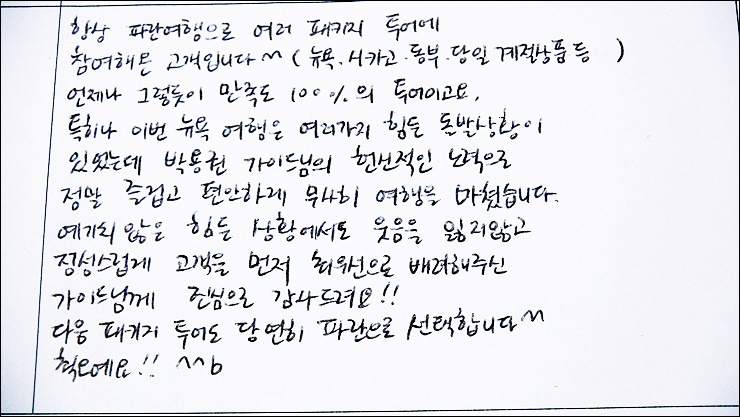 항상 파란여행으로 여러 패키지 투어에
참여해본 고객입니다^^ ( 뉴욕.시카고.동부.당일.계절상품 등 )
언제나 그렇듯이 만족도 100%의 투어이고요,
특히나 이번 뉴욕 여행은 여러가지 힘든 돌발상황이
있었는데 박용권 가이드님의 헌신적인 노력으로
정말 즐겁고 편안하게 무사히 여행을 마쳤습니다.
예기치 않은 힘든 상황에서도 웃음을 잃지않고
정성스럽게 고객을 먼저 최우선으로 배려해주신
가이드님께 진심으로 감사드려요!!
다음 패키지 투어도 당연히 파란으로 선택합니다^^
최고예요!! ^^b